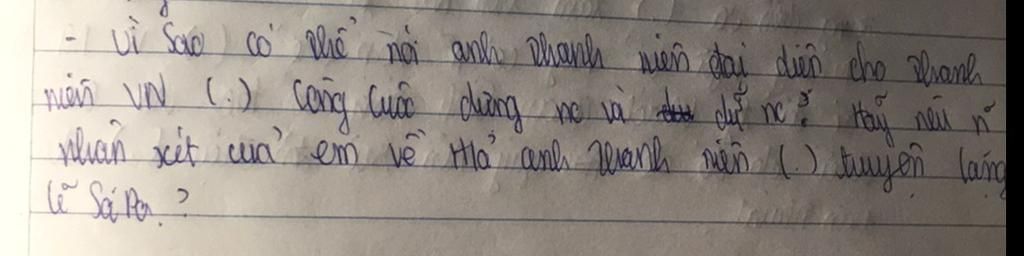 - Vì sao có thể nói anh thanh niên đại diện cho thanh
niên VN (.) công cuộc dựng nc và giữ nc? Hãy nêu n~
nhận xét của em về H/ả anh thanh niên (.) truyện lặng
lẽ Sa Pa?